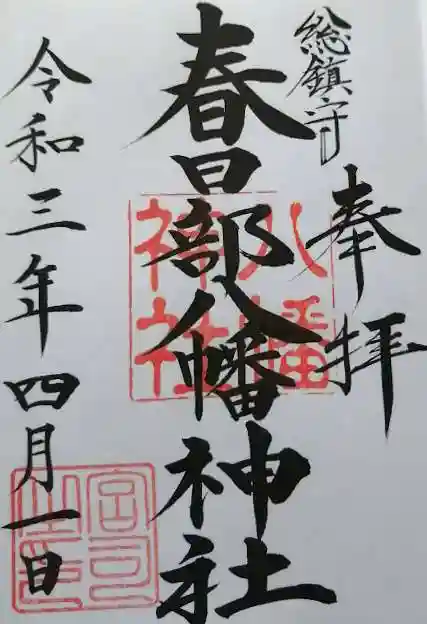 総鎮守
奉拝
春日部八幡神社
八幡
神社
令和三年四月一日
宮司
之印